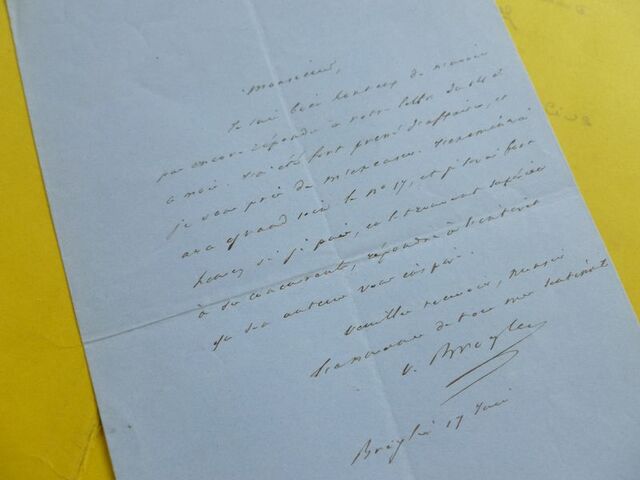 Monsieur,
Je suis bien honteux de n'avoir
pas encore répondu à votre lettre du
ce mois. J'ai été fort pressé d'affaires, et
je vous prie de m'excuser. J'examinerai
avec grand soin le No 17, et je serai fort
heureux si je puis, en le trouvant supérieur
à ses concurrents, répondre à l'intérêt
que son auteur vous inspire.
Veuillez recevoir, Monsieur
l'assurance de tous mes sentiments
V. Broglie
Broglie 17 Juin